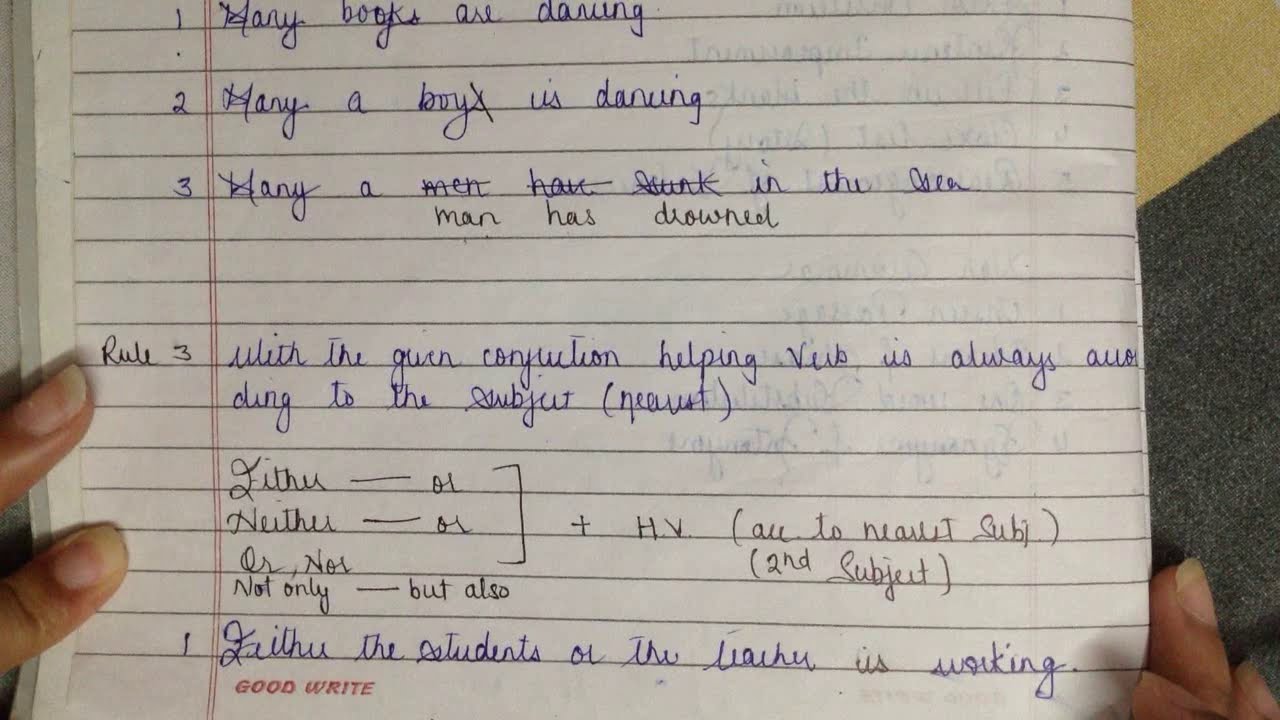 1 Many books are dancing.
2 Many a boy is dancing
3 Many a men have sunk in the sea
man has drowned
Rule 3 With the given conjuction helping verb is always accor
ding to the subject (nearest)
Either — or
Neither — or
Or, Nor
Not only — but also
+ H.V. (acc to nearest Subj.)
(2nd Subject)
1 Either the students or the teacher is working.
GOOD WRITE